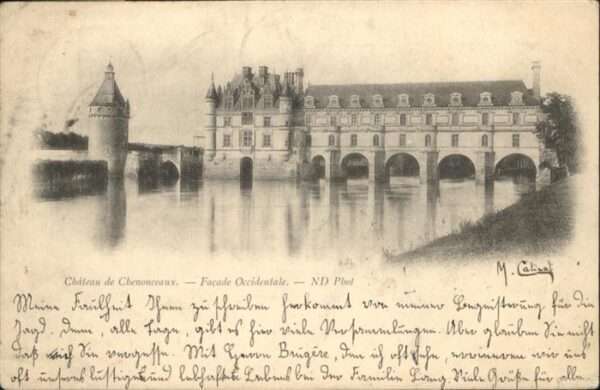 Château de Chenonceaux. — Façade Occidentale. — ND Phot
M. Catinat
Meine Faulheit Ihnen zu schreiben herkommt von meiner Begeisterung für die
Jagd. denn, alle Tage, gibt es hier viele Versammlungen. Aber glauben Sie nicht
daß ich Sie vergesse. Mit Herrn Brugère, den ich oft sehe, erinneren wir uns
oft unseres lustigen und lebhaften Lebens bei der Familie Lang. Viele Grüße für alle.